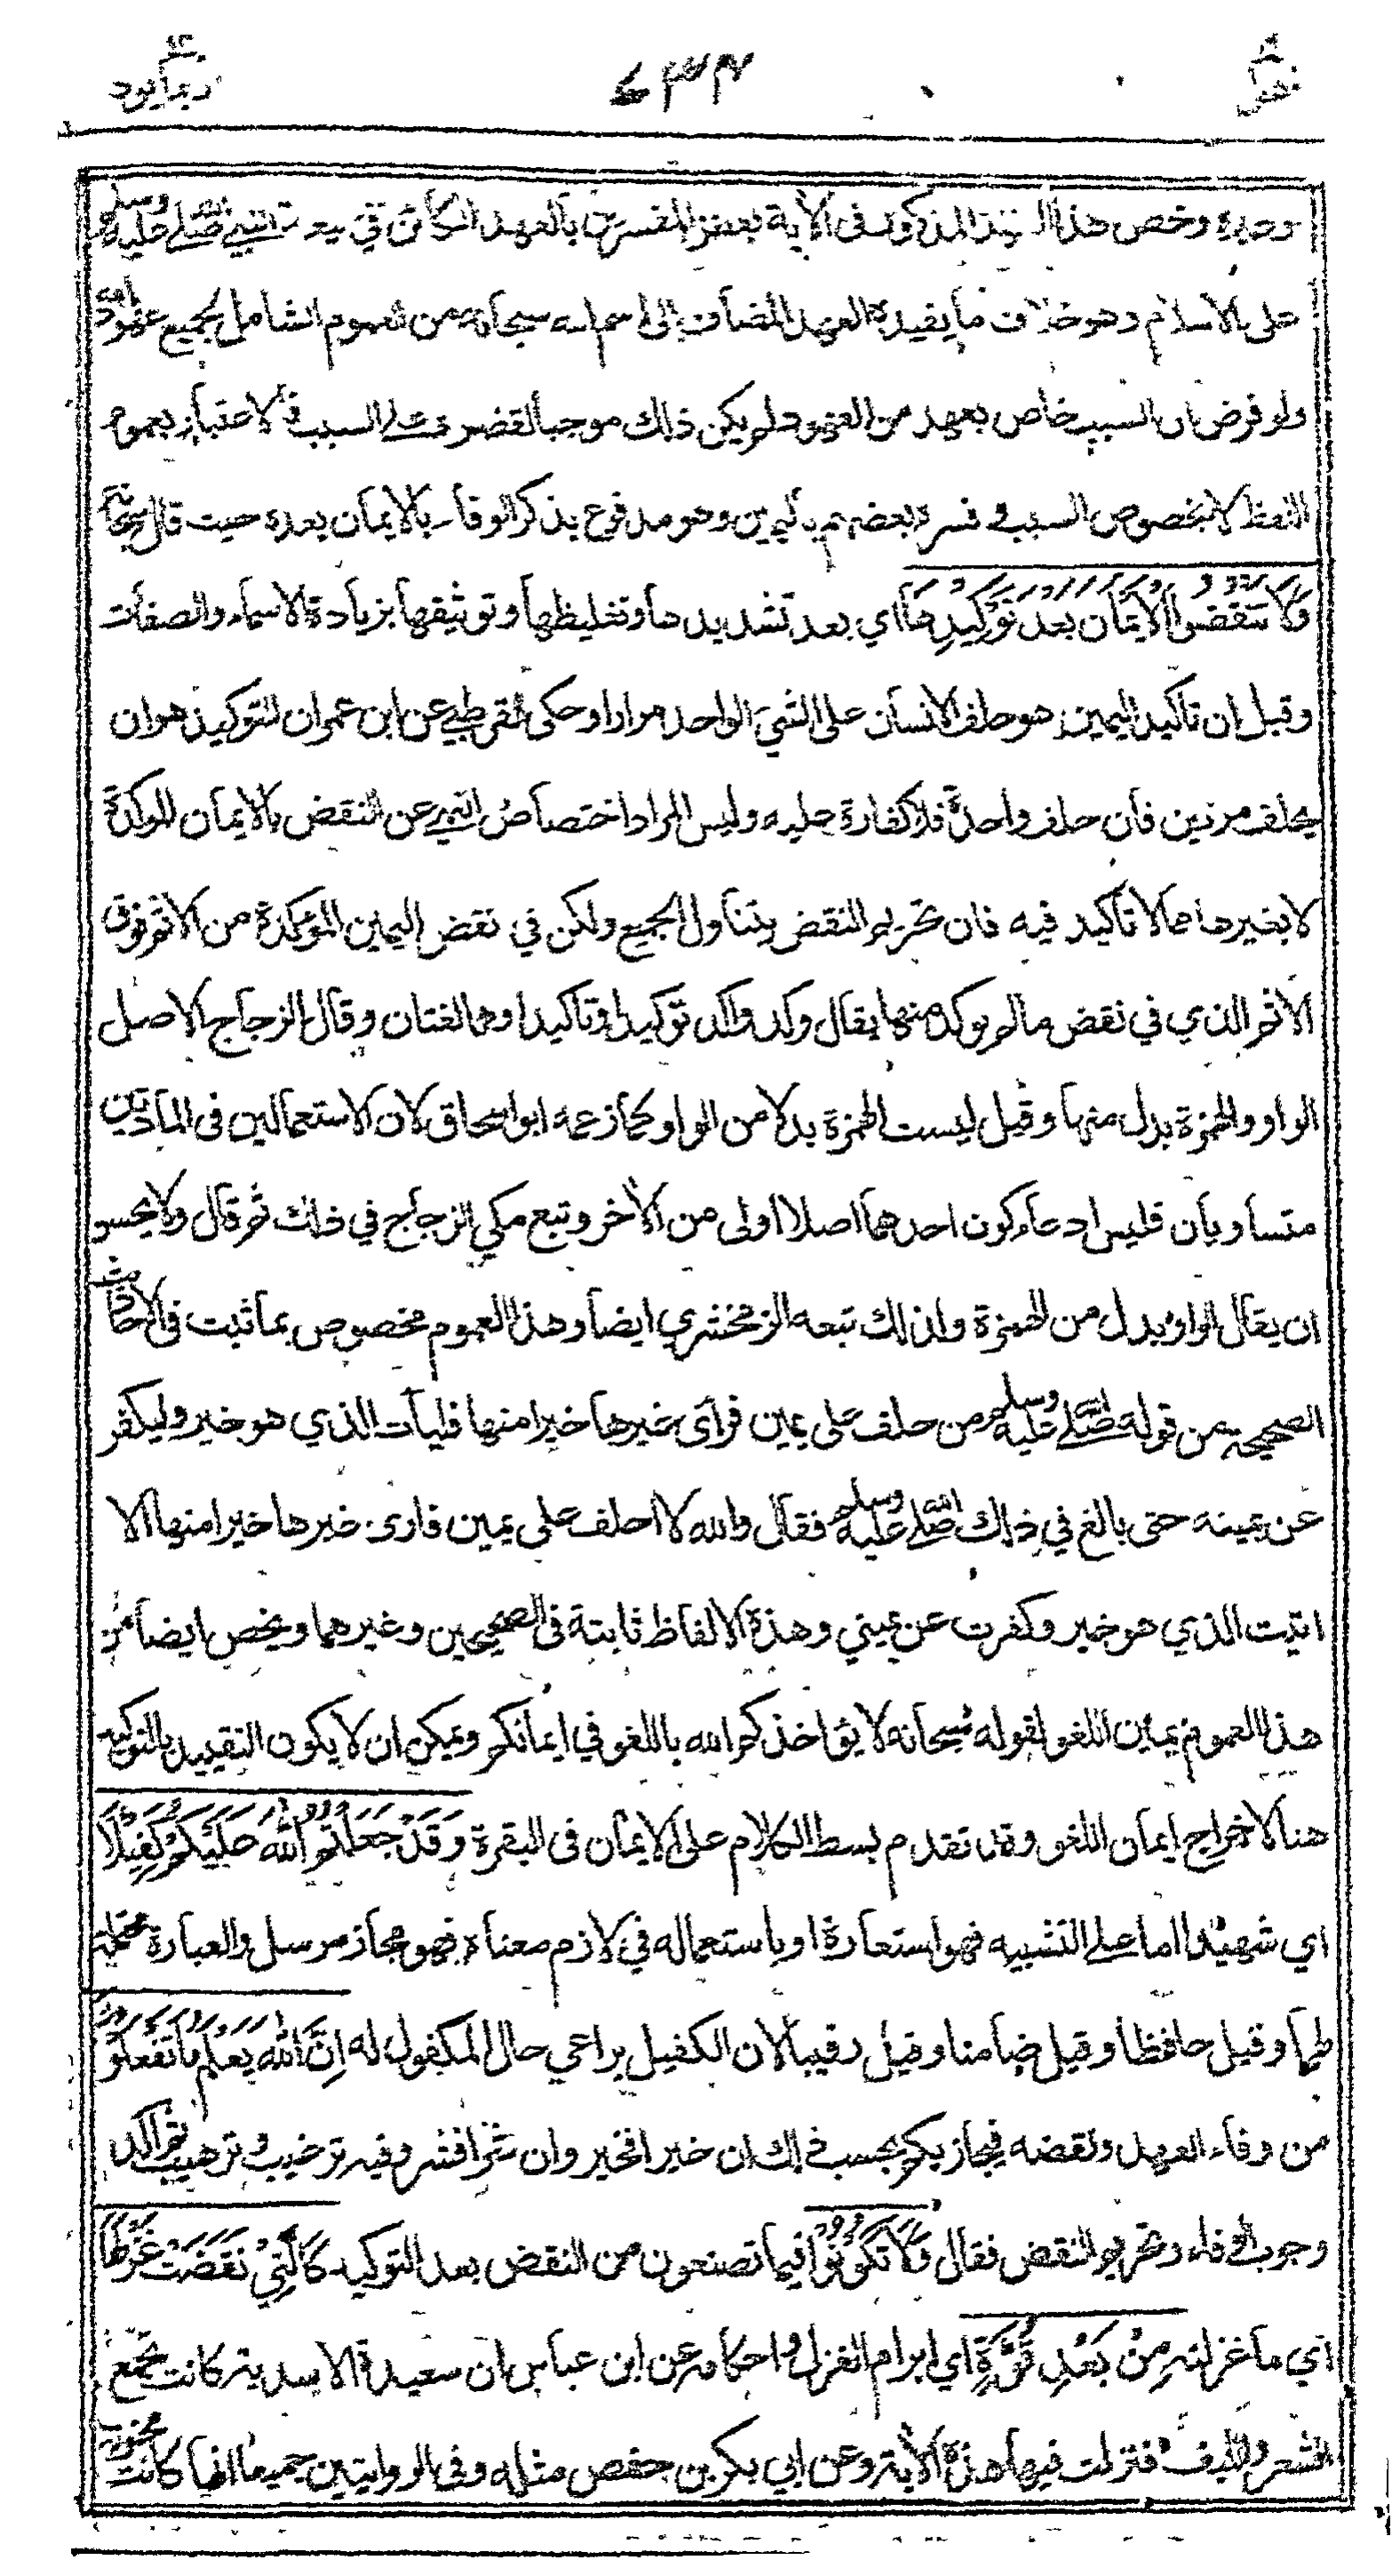 النحل ٧٣٤ ربما يود
وحده وخص هذا العهد المذكور فى الأية بعض المفسرين بالعهد الكائن في بيعة النبي صلى الله عليه وسلم
على الاسلام وهو خلاف ما يفيده العهد المضاف الى اسم الله سبحانه من العموم الشامل لجميع عهود الله
ولو فرض ان السبب خاص بعهد من العهود لم يكن ذلك موجبا لقصره على السبب فالاعتبار بعموم
اللفظ لا بخصوص السبب وفسره بعضهم باليمين وهو مدفوع بذكر الوفاء بالايمان بعده حيث قال سبحانه
وَلَا تَنْقُضُوا الْاَيْمَانَ بَعْدَ تَوْكِيْدِهَا اي بعد تشديدها وتغليظها وتوثيقها بزيادة الاسماء والصفات
وقيل ان تاكيد اليمين هو حلف الانسان على الشيء الواحد مرارا وحكى القرطبي عن ابن عمران التوكيد هو ان
يحلف مرتين فان حلف واحدة فلا كفارة عليه وليس المراد اختصاص النهي عن النقض بالايمان الموكدة
لا بغيرها مما لا تأكيد فيه فان تحريم النقض يتناول الجميع ولكن في نقض اليمين المؤكدة من الاثم فوق
الاثم الذي في نقض ما لم يوكد منها يقال وكد واكد توكيدا وتاكيدا وهما لغتان وقال الزجاج الاصل
الواو والهمزة بدل منها وقيل ليست الهمزة بدلا من الواو كما زعمه ابو اسحاق لان الاستعمالين فى المادتين
متساويان فليس ادعاء كون احدهما اصلا اولى من الأخر وتبع مكي الزجاج في ذلك ثم قال ولا يحسن
ان يقال الواو بدل من الهمزة ولذلك تبعه الزمخشري ايضا وهذا العموم مخصوص بما ثبت فى الاحاديث
الصحيحة من قوله صلى الله عليه وسلم من حلف على يمين فرأى غيرها خيرا منها فليأت الذي هو خير وليكفر
عن يمينه حتى بالغ في ذلك صلى الله عليه وسلم فقال والله لا احلف على يمين فارى غيرها خيرا منها الا
اتيت الذي هو خير وكفرت عن يميني وهذه الالفاظ ثابتة فى الصحيحين وغيرهما ويخص ايضا من
هذا العموم يمين اللغو لقوله سبحانه لا يؤاخذكم الله باللغو في ايمانكم ويمكن ان لا يكون التقييد بالتوكيد
هنا لاخراج ايمان اللغو وقد تقدم بسط الكلام على الايمان فى البقرة وَقَدْ جَعَلْتُمُ اللّٰهَ عَلَيْكُمْ كَفِيْلًا
اي شهيدا اما على التشبيه فهو استعارة او باستعماله في لازم معناه فهو مجاز مرسل والعبارة محتملة
لهما وقيل حافظا وقيل ضامنا وقيل رقيبا لان الكفيل يراعي حال المكفول له اِنَّ اللّٰهَ يَعْلَمُ مَا تَفْعَلُوْنَ
من وفاء العهد ونقضه فيجازيكم بحسب ذلك ان خيرا فخير وان شرا فشر وفيه ترغيب وترهيب ثم اكد
وجوب الوفاء وتحريم النقض فقال وَلَا تَكُوْنُوْا فيما تصنعون من النقض بعد التوكيد كَالَّتِيْ نَقَضَتْ غَزْلَهَا
اي ما غزلته مِنْ بَعْدِ قُوَّةٍ اي ابرام الغزل واحكامه عن ابن عباس ان سعيدة الاسدية كانت تجمع
الشعر والليف فنزلت فيها هذه الأية وعن ابي بكر بن حفص مثله وفى الروايتين جميعا انها كانت مجنونة